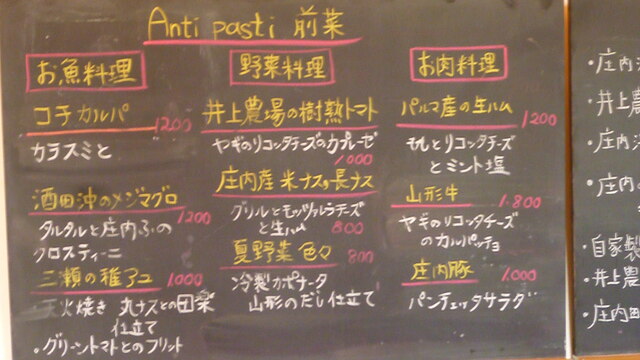 Antipasti 前菜
お魚料理
コチカルパ 1200
カラスミと
酒田沖のメジマグロ 1200
タルタルと庄内ふの
クロスティーニ
三瀬の稚アユ 1000
天火焼き 丸ナスとの田楽
仕立て
・グリーントマトとのフリット
野菜料理
井上農場の樹熟トマト
ヤギのリコッタチーズのカプレーゼ
1000
庄内産 米ナスの長ナス
グリルとモッツァレラチーズ
と生ハム 800
夏野菜 色々 800
冷製カポナータ
山形のだし仕立て
お肉料理
パルマ産の生ハム 1200
リコッタチーズ
とミント塩
山形牛 1.800
ヤギのリコッタチーズ
のカルパッチョ
庄内豚 1.000
パンチェッタサラダ
・庄内
・井上農
・庄内
・庄内の
・自家製
・井上農
・庄内田